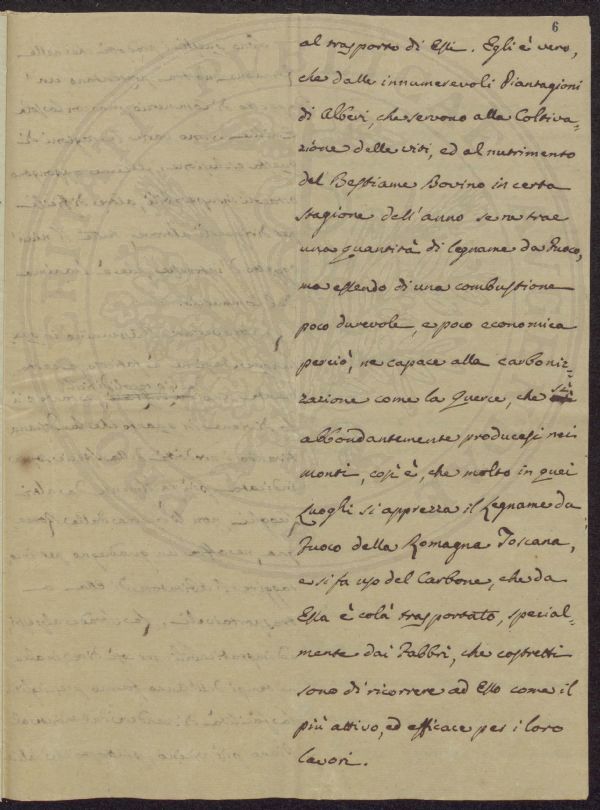 6
al trasporto di Essi. Egli è vero,
che dalle innumerevoli Piantagioni
di Alberi, che servono alla Coltiva-
zione delle viti, ed al nutrimento
del Bestiame Bovino in certa
stagione dell'anno se ne trae
una quantità di legname da Fuoco,
ma essendo di una combustione
poco durevole, e poco economica
perciò, ne capace alla carboniz-
zazione come la Querce, che sì
abbondantemente producesi nei
monti, così è, che molto in quei
Luoghi si apprezza il Legname da
Fuoco della Romagna Toscana,
e si fa uso del Carbone, che da
Essa è colà trasportato, special-
mente dai Fabbri, che costretti
sono di ricorrere ad Esso come il
più attivo, ed efficace per i loro
lavori.